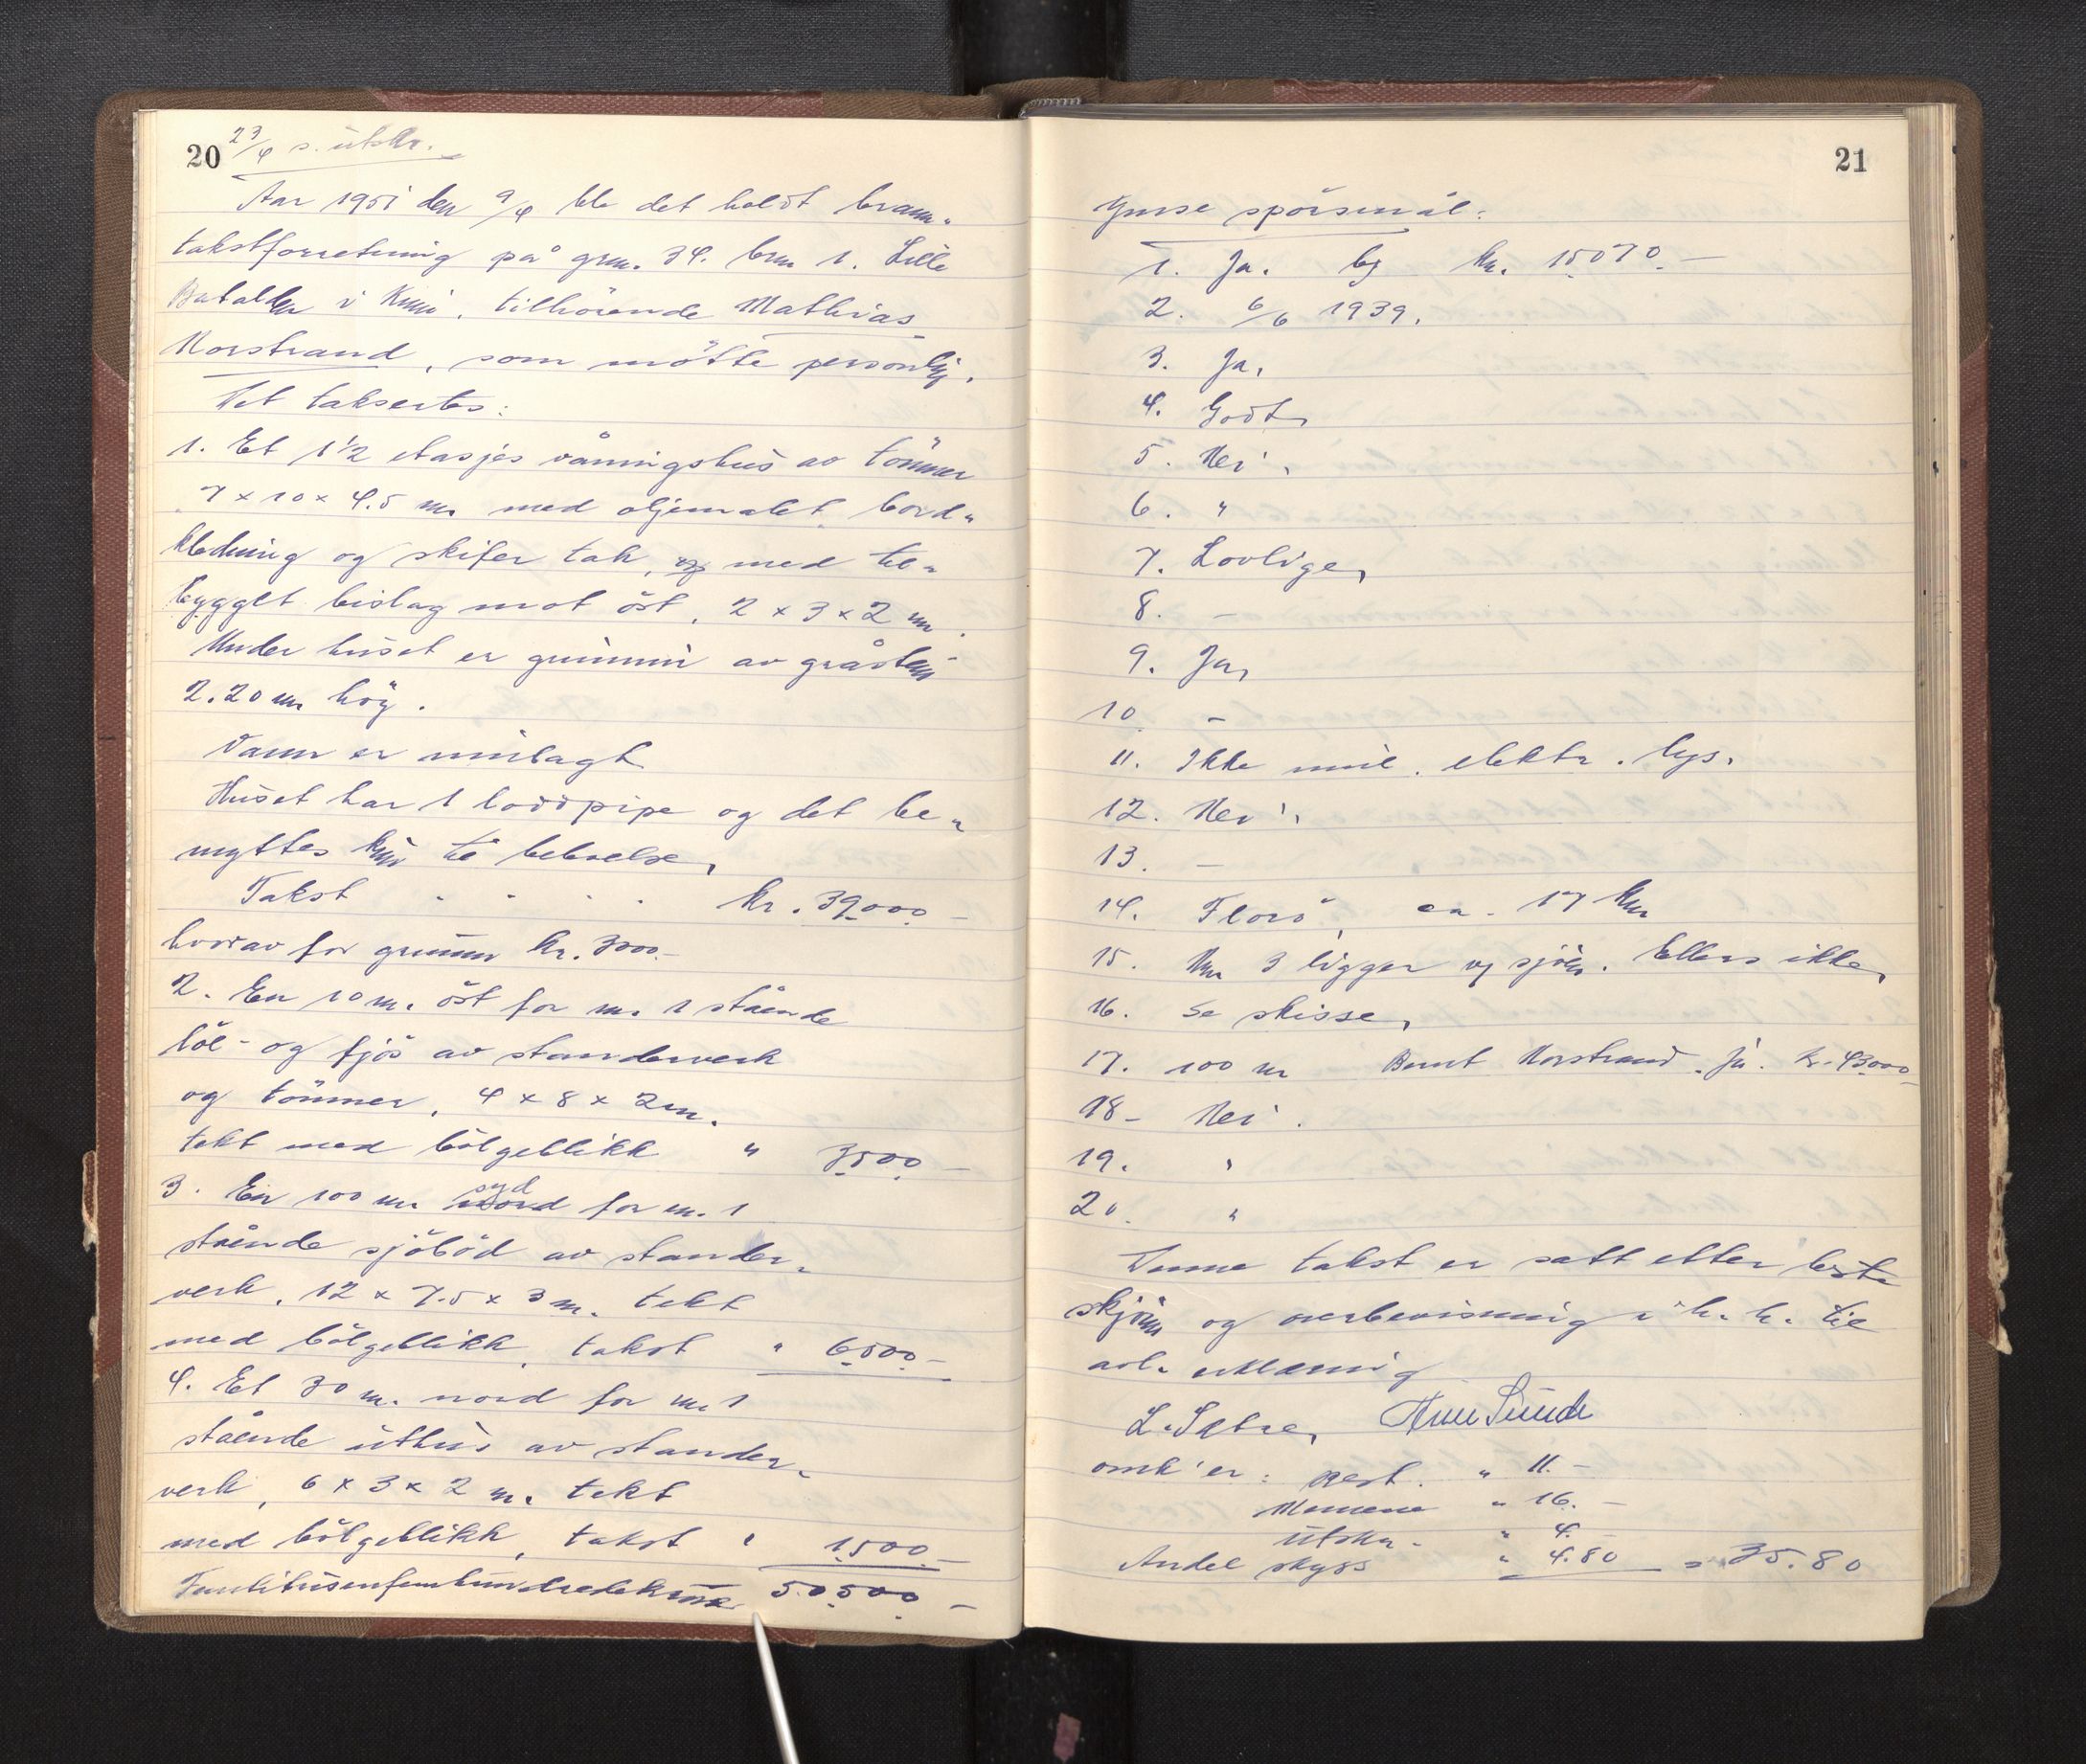 20
23/4 s. utskr.
Aar 1951 den 9/4 ble det holdt brann-
takstforretning på grn. 34. brn 1. Lille
Batalden i Kinn, tilhörende Mathias
Norstrand, som mötte personlig.
Det taksertes:
1. Et 1 1/2 etasjes våningshus av tömmer
7 x 10 x 4.5 m. med oljemalet bord-
kledning og skifer tak, med til-
bygget bislag mot öst, 2 x 3 x 2 m.
Under huset er grunnmur av gråstein
2.20 m. höy.
Vann er innlagt
Huset har 1 loddpipe og det be-
nyttes kun til beboelse,
Takst kr. 39000.-
hvorav for grunnm kr. 3000.-
2. En 10 m. öst for nr. 1 stående
löe- og fjös av standerverk
og tömmer, 4 x 8 x 2 m.
tekt med bölgeblikk " 3500.-
3. En 100 m. nord syd for nr. 1
stående sjöbod av stander-
verk, 12 x 7.5 x 3 m. tekt
med bölgeblikk, takst " 6500.-
4. Et 30 m. nord for nr. 1
stående uthus av stander-
verk, 6 x 3 x 2 m. tekt
med bölgeblikk, takst " 1500.-
Femtitusenfemhundredekroner 50500.-
21
Ymse spörsmål:
1. Ja. bf kr. 15070.-
2. 6/6 1939.
3. Ja,
4. Godt,
5. Nei,
6. "
7. Lovlige,
8. -
9. Ja,
10 -
11. Ikke innl. elektr. lys.
12. Nei,
13. -
14. Florö, ca. 17 km
15. Nr 3 ligger v/ sjöen. Ellers ikke,
16. Se skisse,
17. 100 m Bernt Norstrand. Ja. kr. 43000.-
18- Nei.
19. "
20. "
Denne takst er satt etter beste
skjönn og overbevisning i h. h. til
avl. erklæring
L. Sætre,
omk'er: Best. " 11.-
Mennene " 16.-
Utskr. " 4.-
Andel skyss " 4.80 = 35.80